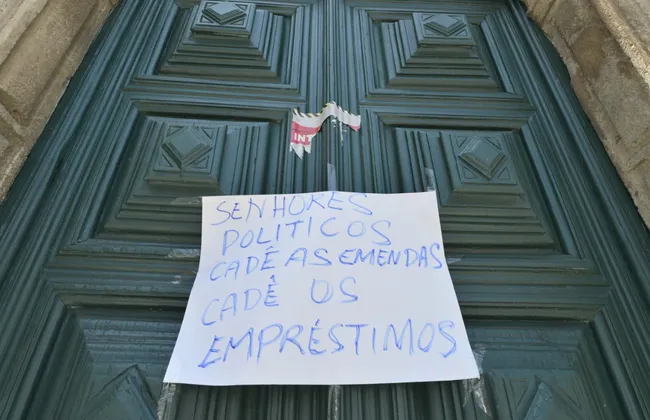 INT
SENHORES
POLITICOS
CADÊ AS EMENDAS
CADÊ OS
EMPRÉSTIMOS